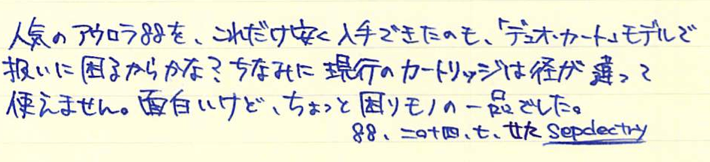 人気のアウロラ88を、これだけ安く入手できたのも、「デュオ・カート」モデルで
扱いに困るからかな？ちなみに現行のカートリッジは径が違って
使えません。面白いけど、ちょっと困りモノの一品でした。
88、二〇十四、七、廿た